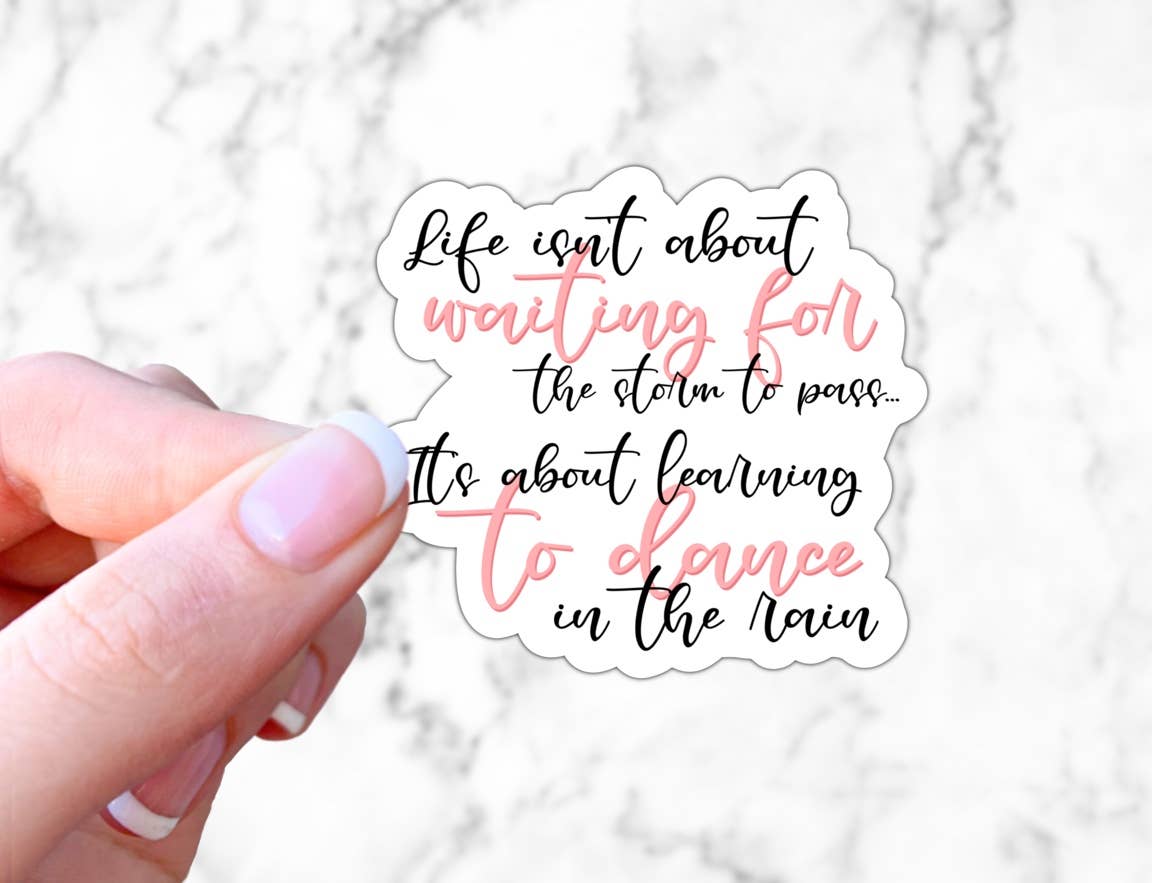 Life isn't about
waiting for
the storm to pass...
It's about learning
to dance
in the rain